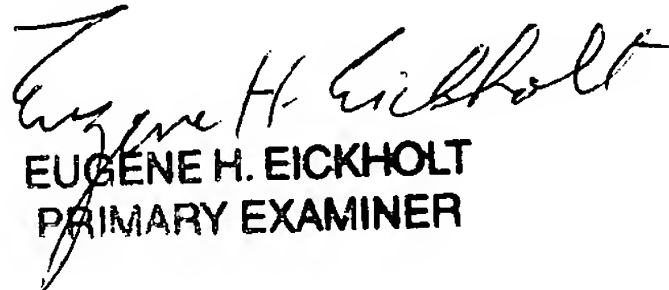 Eugene H. Eickholt
EUGENE H. EICKHOLT
PRIMARY EXAMINER